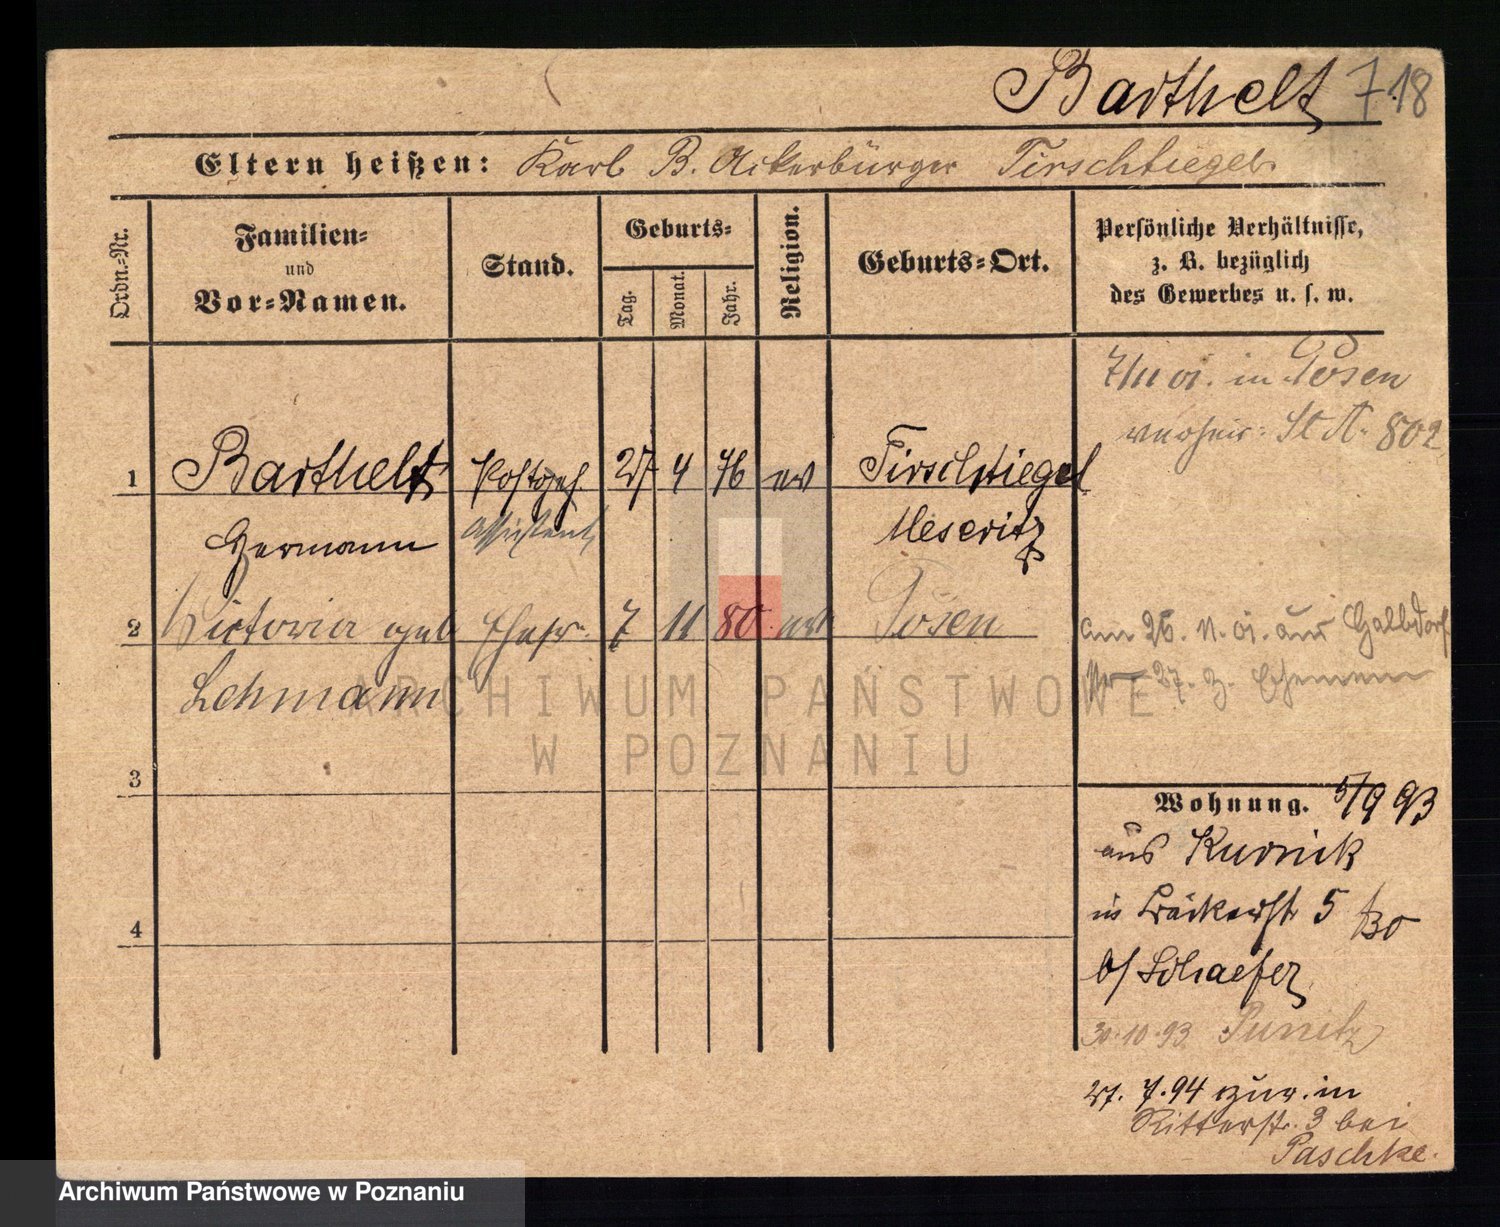 Barthelt 718
Eltern heißen: Karl B. Ackerbürger Tirschtiegel.
Ordn.-Nr.
Familien-
und
Vor-Namen.
Stand.
Geburts-
Tag.
Monat.
Jahr.
Religion.
Geburts-Ort.
Persönliche Verhältnisse,
z. B. bezüglich
des Gewerbes u. s. w.
7/11 01. in Posen
verheir: St A. 802
1 Barthelt Postgeh. 27 4 76 ev Tirschtiegel
Hermann Assistent Meseritz
2 Victoria geb Ehefr. 7 11 80 Posen
Lehmann
am 26. 11. 01. aus
27. z. Ehemann
3
4
Wohnung. 5/9 93
aus Kurnik
in Bäckerstr 5
b/ Schaefer
30.10.93 Punitz
27. 7. 94 zur. in
Ritterstr. 3 bei
Paschke.
ARCHIWUM PAŃSTWOWE
W POZNANIU
Archiwum Państwowe w Poznaniu